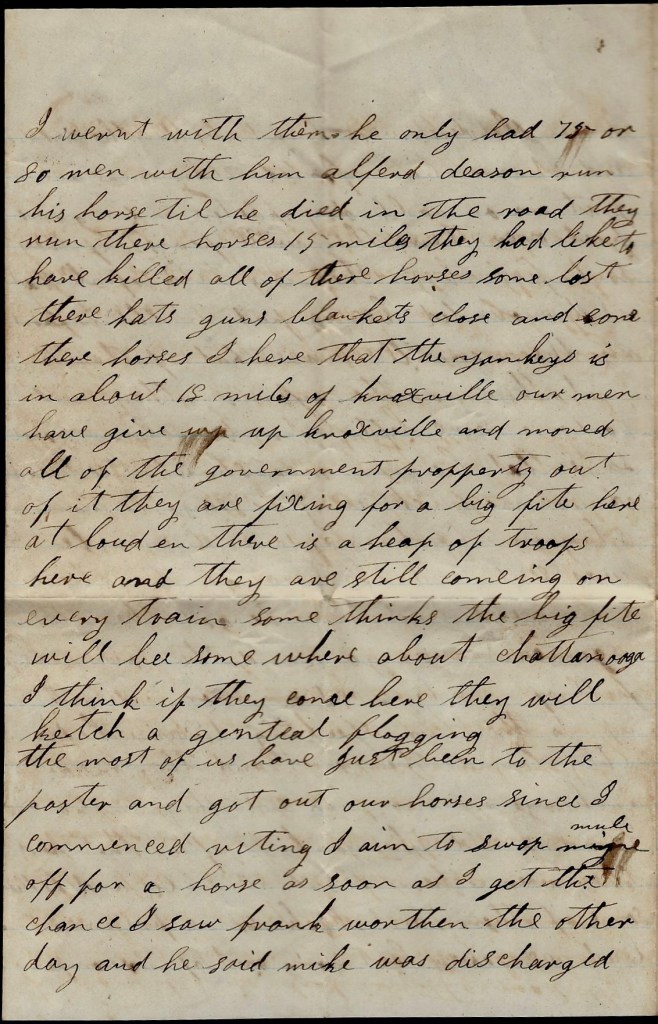 I wernt with them he only had 75 or
80 men with him alferd deason run
his horse til he died in the road they
run there horses 15 miles they had like to
have killed all of there horses some lost
there hats guns blankets close and some
there horses I here that the yankeys is
in about 18 miles of knoxville our men
have give up up knoxville and moved
all of the government propperty out
of it they are fixing for a big fite here
at louden there is a heap of troops
here and they are still comeing on
every train some thinks the big fite
will bee some where about chattanooga
I think if they come here they will
ketch a genteal flogging
the most of us have just been to the
paster and got out our horses since I
commenced riting I aim to swop my mule
off for a horse as soon as I get the
chance I saw frank worthen the other
day and he said mike was discharged